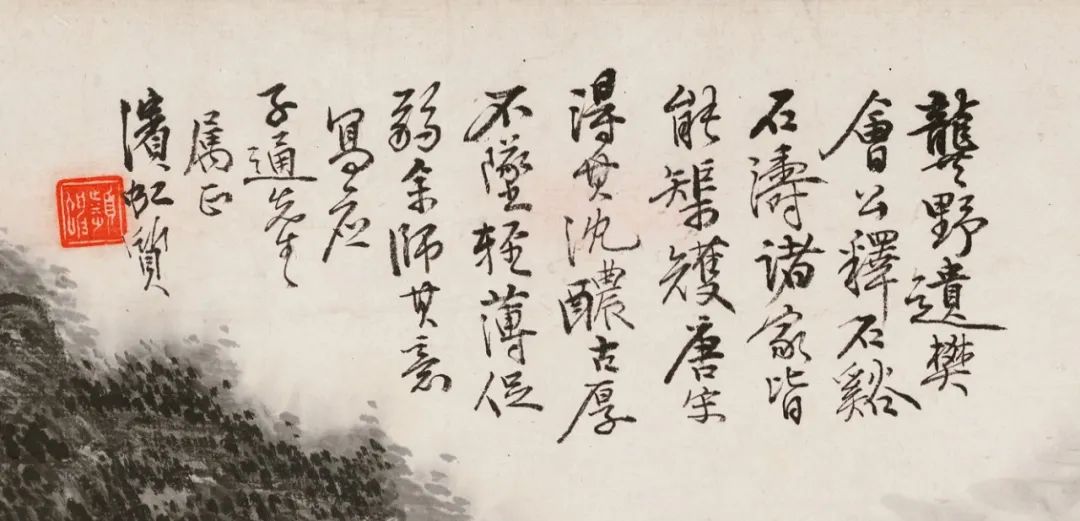 龔野遺樊
會公釋石谿
石濤諸家皆
能榘矱唐宋
得其沈醲古厚
不墜輕薄促
弱余師其意
寫應
子通先生
属正
濱虹質